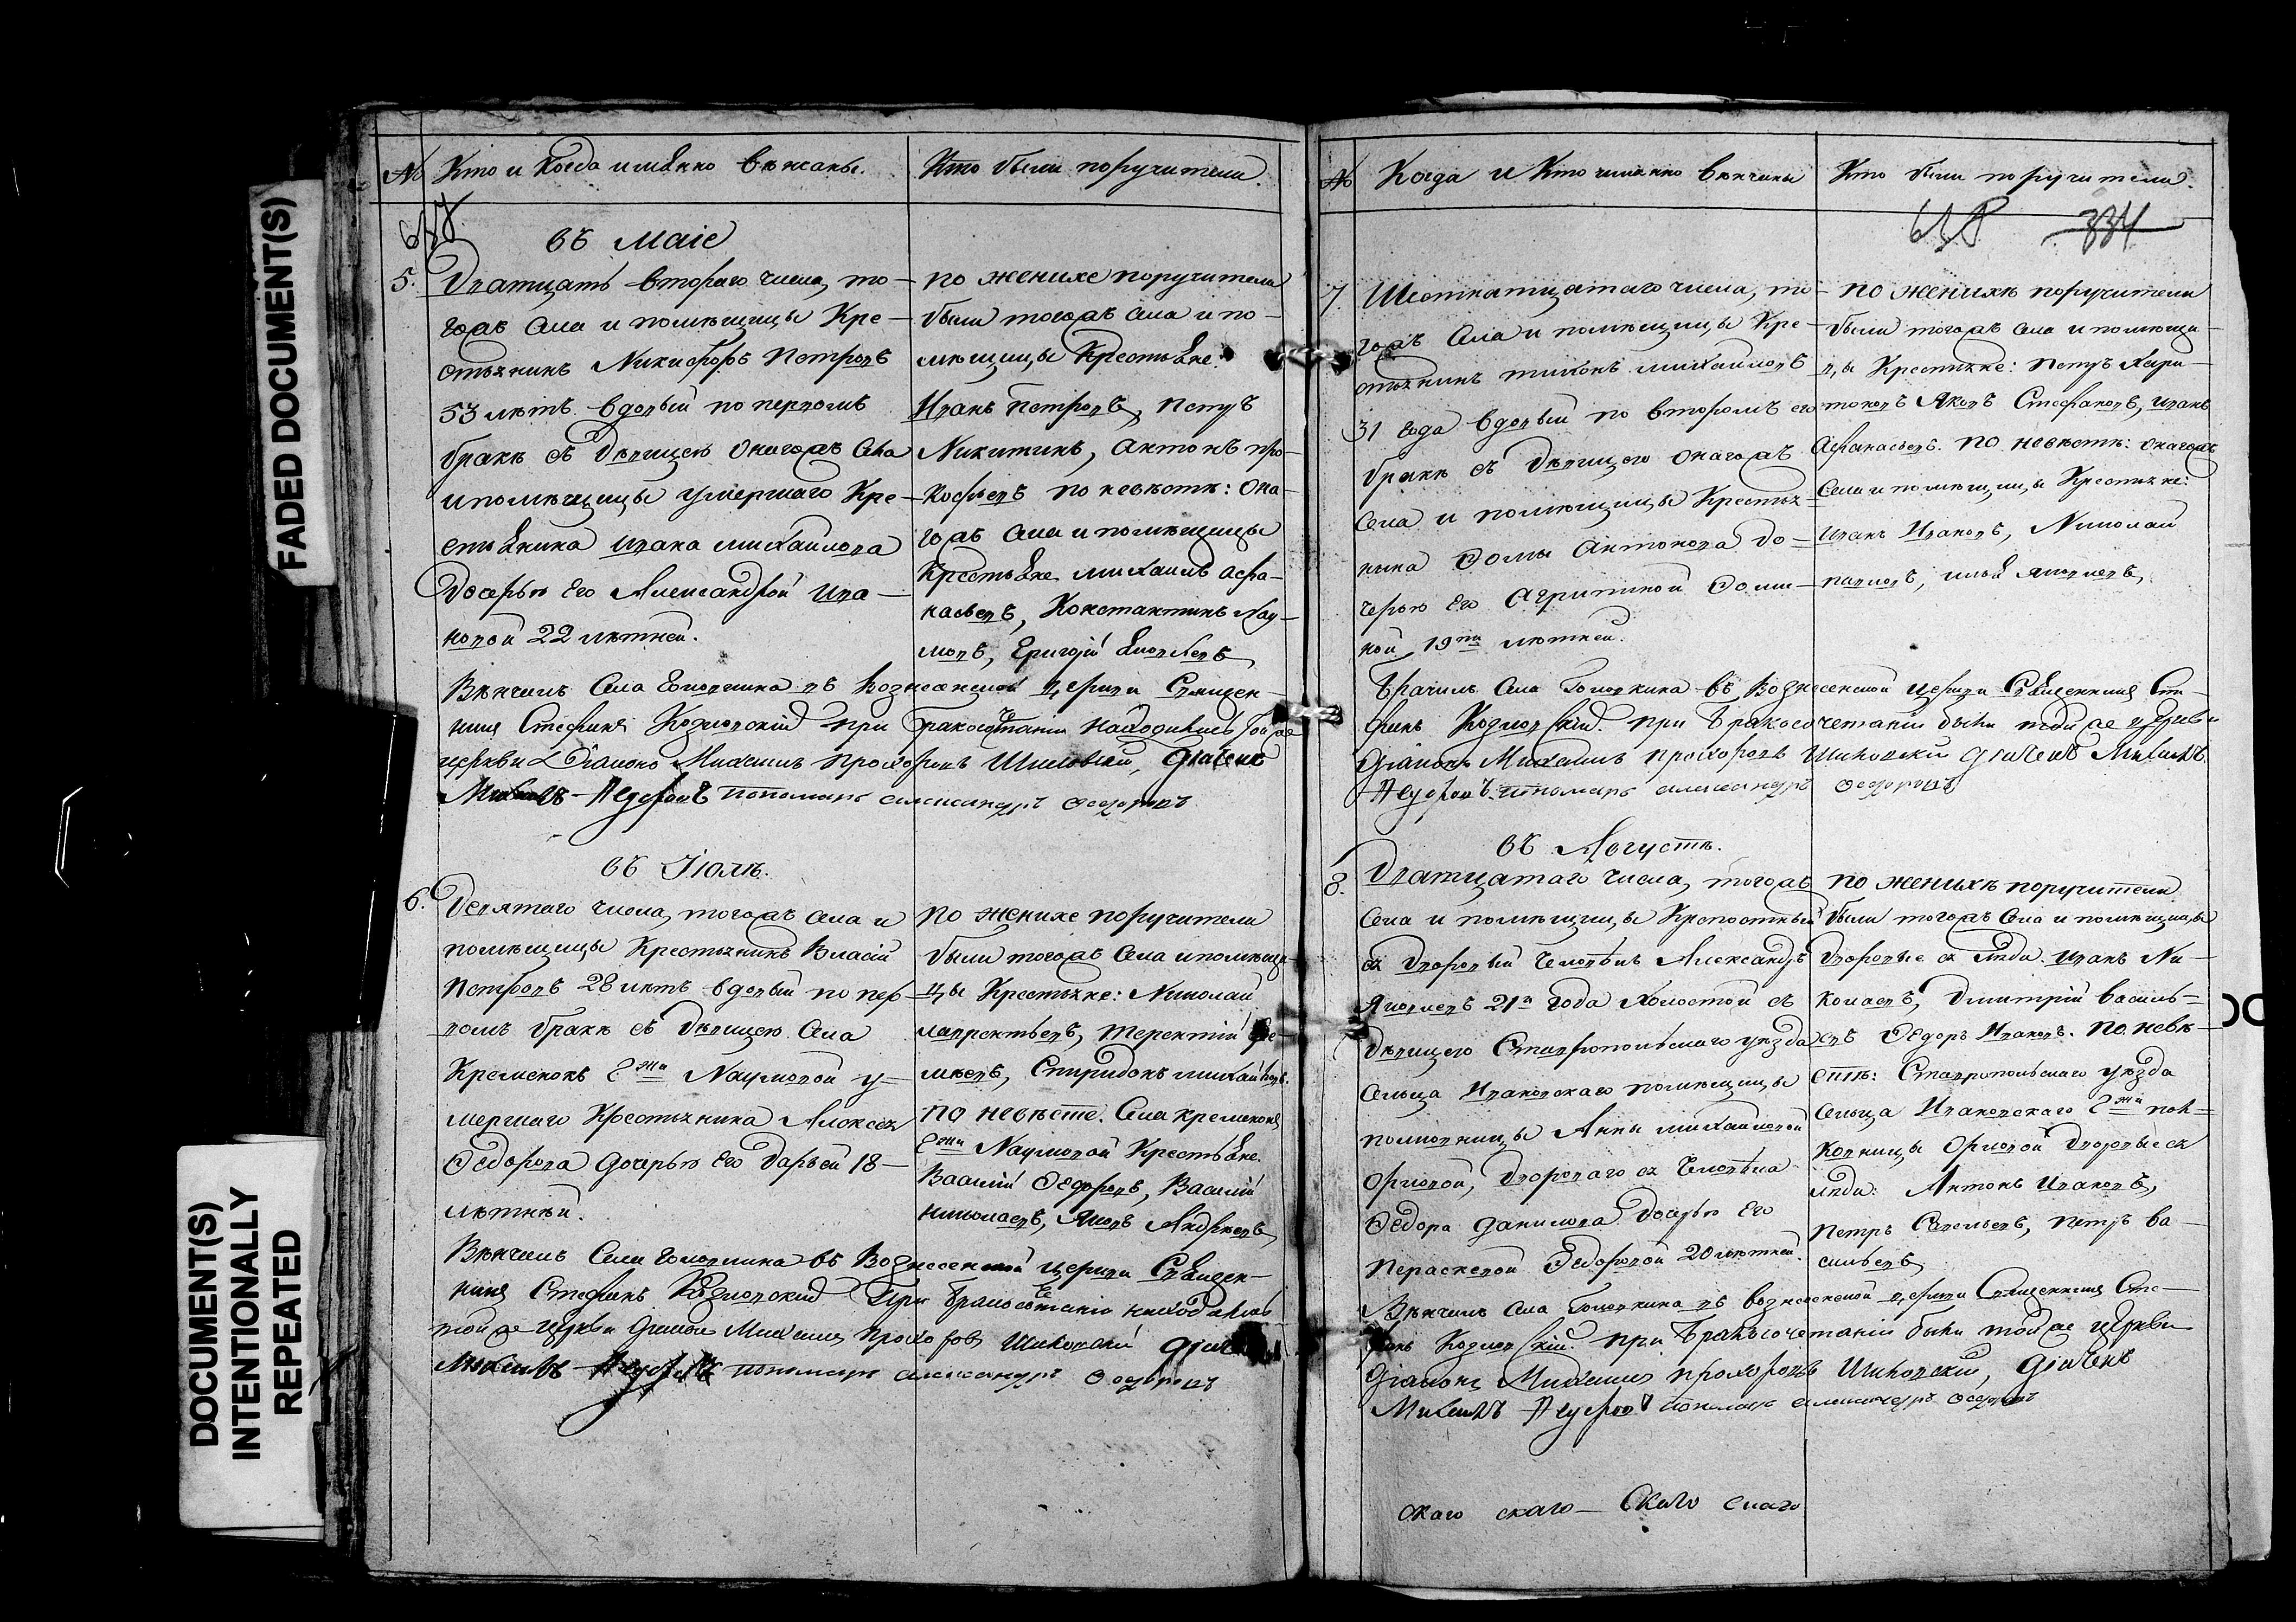 FADED DOCUMENT(S)
DOCUMENT(S)
INTENTIONALLY
REPEATED
№ Кто и когда имянно венчаны.
Кто были поручители.
въ Маіе
5. Дватцать втораго числа, то-
гожъ села и помѣщицы Кре-
стьянинъ Никифоръ Петровъ
53 лѣтъ вдовый по первомъ
бракѣ съ дѣвицею онагожъ села
и помѣщицы умершаго Кре-
стьянина Ивана Михайлова
дочерью его Александрой Ива-
новой 22 лѣтней.
по женихе поручители
были тогожъ села и по-
мѣщицы Крестьяне:
Иванъ Петровъ, Петръ
Никитинъ, Антонъ Про-
кофьевъ по невѣстѣ: она-
гожъ села и помѣщицы
Крестьяне Михаилъ Афа-
насьевъ, Константинъ Нау-
мовъ, Григорій Яковлевъ
Вѣнчалъ села въ Вознесенской церкви Священ-
никъ Стефанъ Козловский при бракосочетаніи находились той же
церкви Діаконъ Михаилъ Прохоровъ Діачекъ
Михаилъ пономарь Александръ Федоровъ
въ Іюлѣ.
6. Девятаго числа, тогожъ села и
помѣщицы Крестьянинъ Власій
Петровъ 28 лѣтъ вдовый по пер-
вомъ бракѣ съ дѣвицею села
Кременокъ Гжи Наумовой у-
мершаго Крестьянина Алексея
Федорова дочерью его Дарьей 18-
лѣтней.
по женихе поручители
были тогожъ села и помѣщи-
цы Крестьяне: Николай
Лаврентьевъ, Терентій
Спиридонъ Михайловъ.
по невѣсте. села Кременокъ
Гжи Наумовой Крестьяне.
Василій Федоровъ, Василій
Николаевъ, Яковъ Андреевъ
Вѣнчалъ села въ Вознесенской церкви Священ-
никъ Стефанъ Козловский При бракосочетаніи находились
той же церкви Діаконъ Михаилъ Прохоровъ
Михаилъ пономарь Александръ Федоровъ
№ Когда и Кто имянно венчаны
Кто были поручители.
334
7. Шестнатцатаго числа, то-
гожъ села и помѣщицы Кре-
стьянинъ Тихонъ Михайловъ
31 года вдовый по второмъ его
бракѣ съ дѣвицею онагожъ
села и помѣщицы Крестья-
нина Фомы Антонова до-
черью его Агрипиной Фоми-
ной 19ти лѣтней.
по женихѣ поручители
были тогожъ села и помѣщи-
цы Крестьяне: Петръ Хари-
тоновъ Яковъ Стефановъ, Иванъ
Афанасьевъ. по невѣстѣ: онагожъ
села и помѣщицы Крестьяне:
Иванъ Ивановъ, Николай
Павловъ, Илья Яковлевъ,
Брачилъ села въ Вознесенской церкви Священникъ Сте-
фанъ Козловскій. при бракосочетаніи были той же церкви
Діаконъ Михаилъ Прохоровъ Діачекъ Михаилъ
пономарь Александръ Федоровъ
въ Августѣ.
8. Дватцатаго числа, тогожъ
села и помѣщицы Крепостный
ея дворовый человѣкъ Александръ
Яковлевъ 21 года холостой съ
дѣвицею Ставропольскаго уѣзда
сельца Ивановскаго помѣщицы
полковницы Анны Михайловой
Орловой, двороваго ея человѣка
Федора Данилова дочерью его
Параскевой Федоровой 20 лѣтней.
по женихѣ поручители
были тогожъ села и помѣщицы
дворовые ея люди. Иванъ Ни-
колаевъ, Дмитрій Василь-
евъ Федоръ Ивановъ. по невѣ-
стѣ: Ставропольскаго уѣзда
сельца Ивановскаго Гжи пол-
ковницы Орловой дворовые ея
люди: Антонъ Ивановъ,
Петръ Савельевъ, Петръ Ва-
сильевъ
Вѣнчалъ села въ Вознесенской церкви Священникъ Сте-
фанъ Козловскій. при бракосочетаніи были той же церкви
Діаконъ Михаилъ Прохоровъ Діачекъ
Михаилъ пономарь Александръ Федоровъ
скаго скаго — Скаго скаго